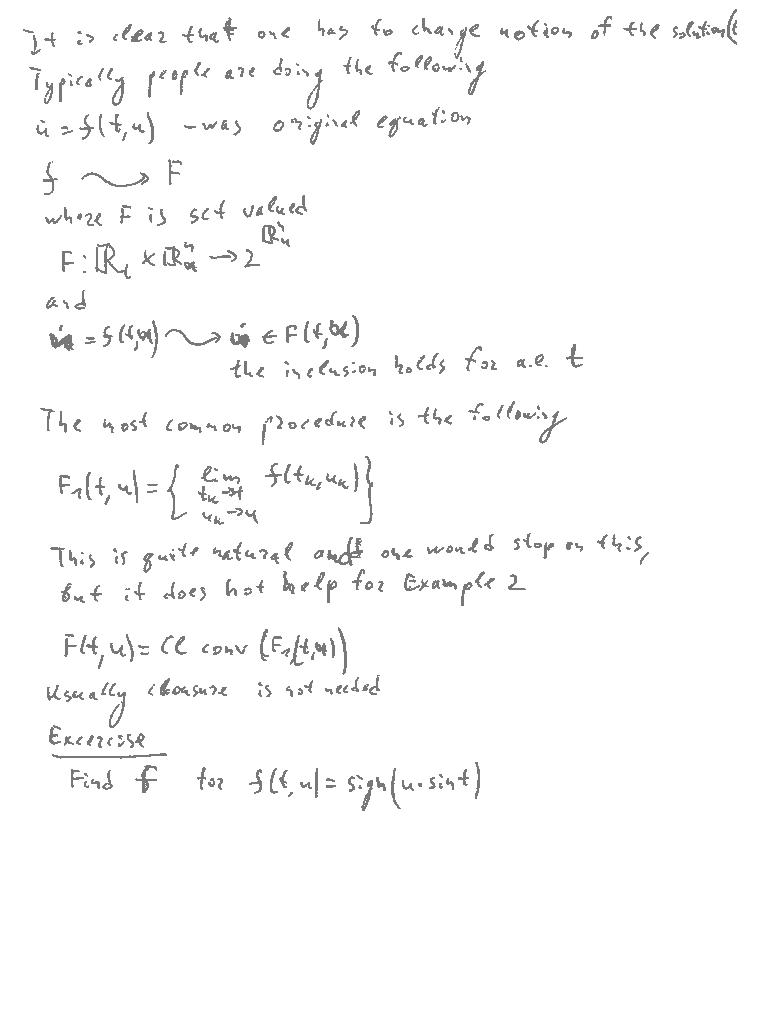 It is clear that one has to change notion of the solution(
Typically people are doing the following
u̇ = f(t,u) - was original equation
f ⇝ F
where F is set valued
F : ℝ_t × ℝ^n_u → 2^{ℝ^n_u}
and
u̇ = f(t,u) ⇝ u̇ ∈ F(t,u)
the inclusion holds for a.e. t
The most common procedure is the following
F₁(t,u) = { lim_{t_k→t, u_k→u} f(t_k,u_k) }
This is quite natural and one would stop on this,
but it does not help for Example 2
F(t,u) = Cl conv (F₁(t,u))
Usually closure is not needed
Excercise
Find F for f(t,u) = sign(u·sin t)